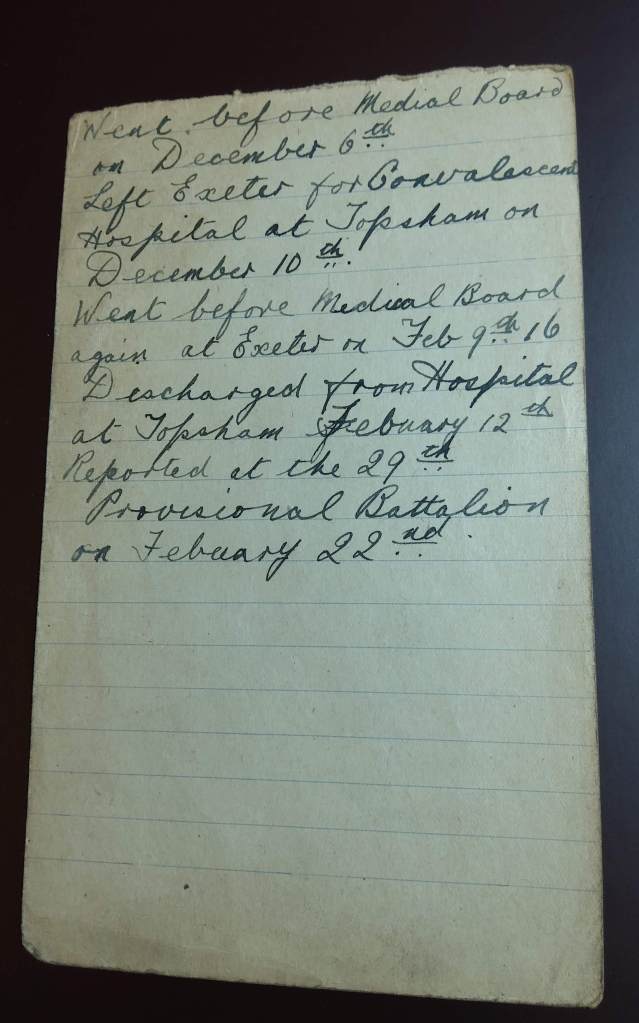 Went before Medial Board
on December 6th
Left Exeter for Convalescent
Hospital at Topsham on
December 10th.
Went before Medical Board
again at Exeter on Feb 9th 16
Descharged from Hospital
at Topsham Febuary 12th
Reported at the 29th
Provisional Battalion
on Febuary 22nd.